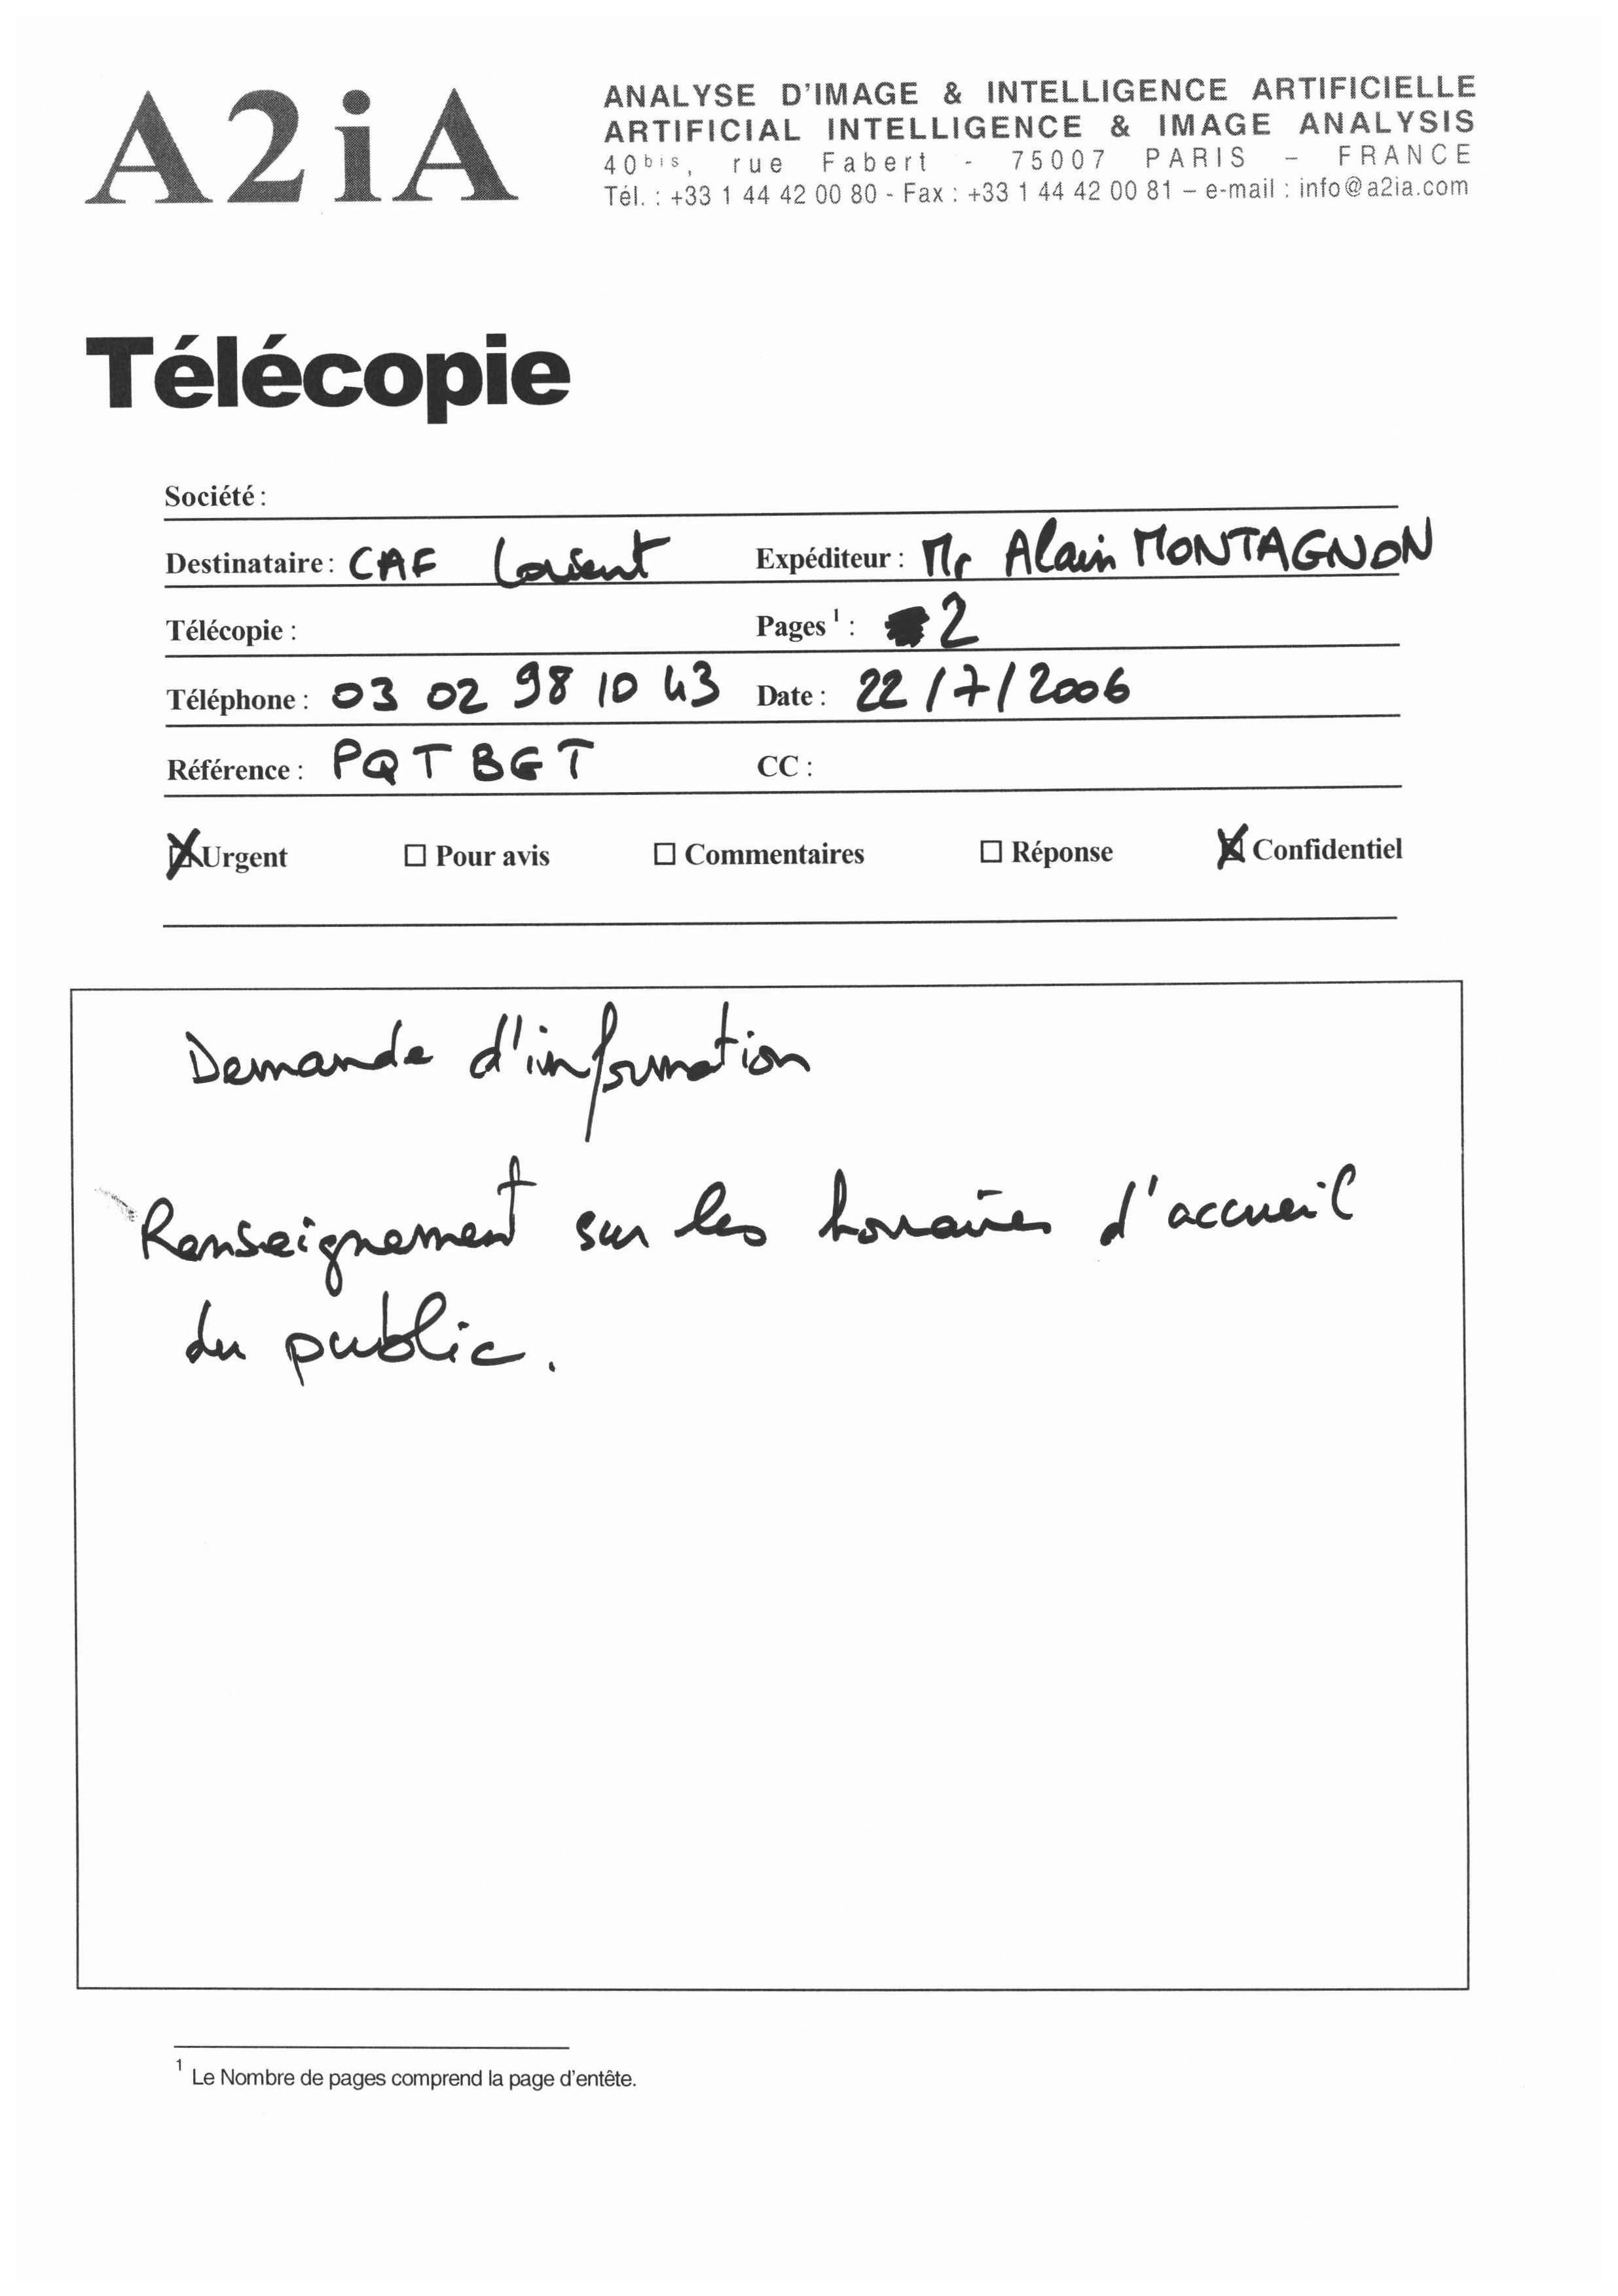 A2iA
ANALYSE D'IMAGE & INTELLIGENCE ARTIFICIELLE
ARTIFICIAL INTELLIGENCE & IMAGE ANALYSIS
40bis, rue Fabert - 75007 PARIS – FRANCE
Tél. : +33 1 44 42 00 80 - Fax : +33 1 44 42 00 81 – e-mail : info@a2ia.com
Télécopie
Société :
Destinataire : CAF Lorient Expéditeur : Mr Alain MONTAGNON
Télécopie : Pages 1 : 2
Téléphone : 03 02 98 10 43 Date : 22/7/2006
Référence : PQTBGT CC :
Urgent Pour avis Commentaires Réponse Confidentiel
Demande d'information
Renseignement sur les horaires d'accueil
du public.
1 Le Nombre de pages comprend la page d'entête.